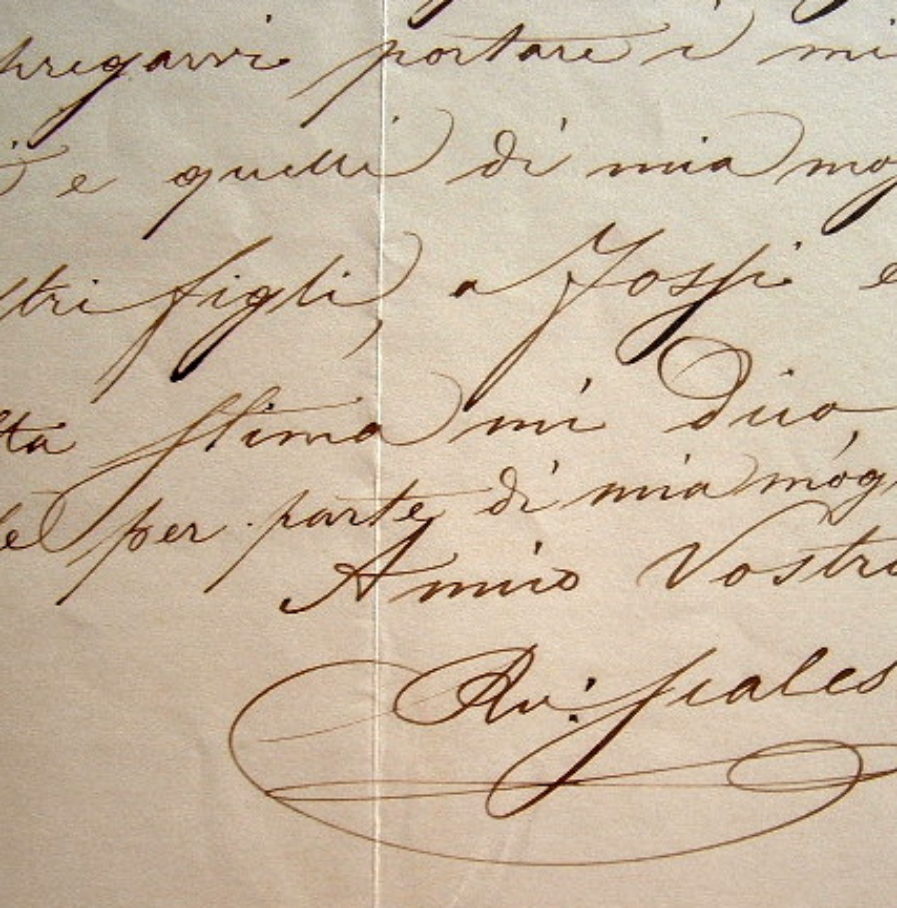 pregarvi portare i mi
e quelli di mia mog
ltri figli, a Joffi e
ta stima mi dico,
le per parte di mia mogl
Amico Vostro